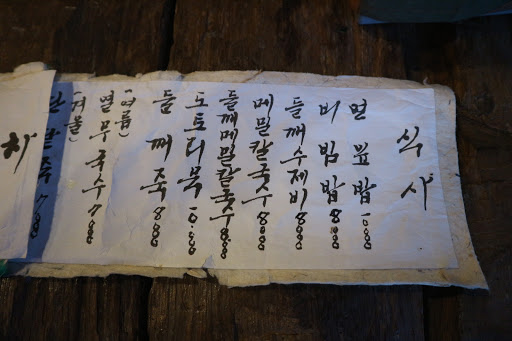 식사
연잎밥 10.000
비빔밥 8000
들깨수제비 8000
메밀칼국수 8000
들깨메밀칼국수 8.000
도토리묵 10.000
들깨죽 8000
(여름)
열무국수 7000
(겨울)
단팥죽
차